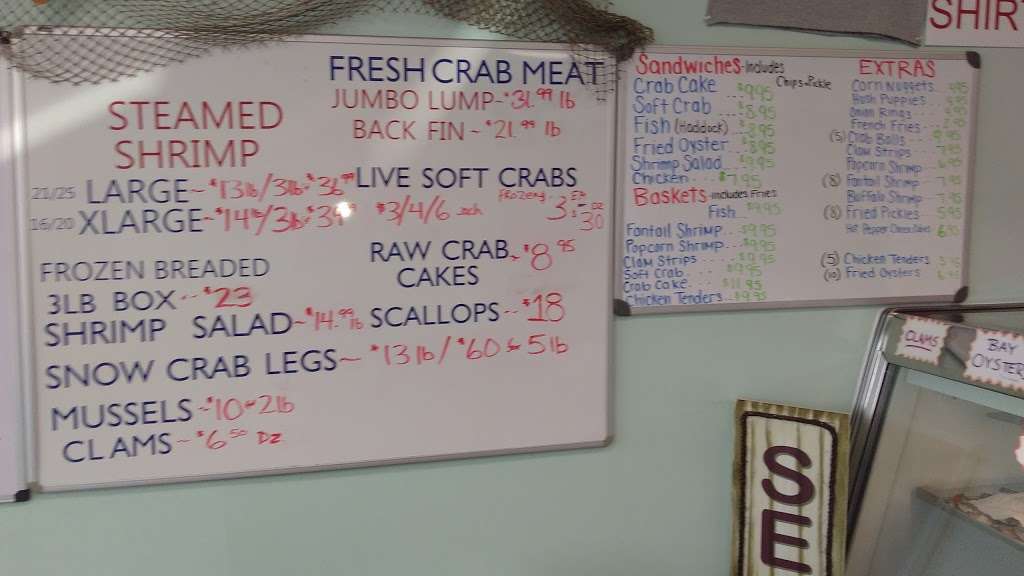 FRESH CRAB MEAT
JUMBO LUMP~$31.99 lb
BACK FIN~$21.99 lb
STEAMED
SHRIMP
21/25 LARGE~$13 lb/3lb
16/20 XLARGE
LIVE SOFT CRABS
$3/4/6 each
Frozen
FROZEN BREADED
3LB BOX~$23
RAW CRAB~$8.95
CAKES
SHRIMP SALAD~$14.99 lb
SCALLOPS~$18
SNOW CRAB LEGS~$13 lb/$60~5lb
MUSSELS~$10~2lb
CLAMS~$6.50 DZ
Sandwiches-includes
Chips & Pickle
Crab Cake $9.95
Soft Crab $8.95
Fish (Haddock) $8.95
Fried Oyster $8.95
Shrimp Salad $9.95
Chicken $7.95
Baskets-includes Fries
Fish $9.95
Fantail Shrimp $9.95
Popcorn Shrimp $9.95
Clam Strips $9.95
Soft Crab $9.95
Crab Cake $11.95
Chicken Tenders $9.95
EXTRAS
Corn Nuggets
Hush Puppies
Onion Rings
French Fries
(5) Crab Balls 9.95
Clam Strips
Popcorn Shrimp
(8) Fantail Shrimp 7.95
Buffalo Shrimp 7.95
(8) Fried Pickles 5.95
Hot Pepper
(5) Chicken Tenders
(10) Fried Oysters
SHIRT
CLAMS
BAY
OYSTER
SE